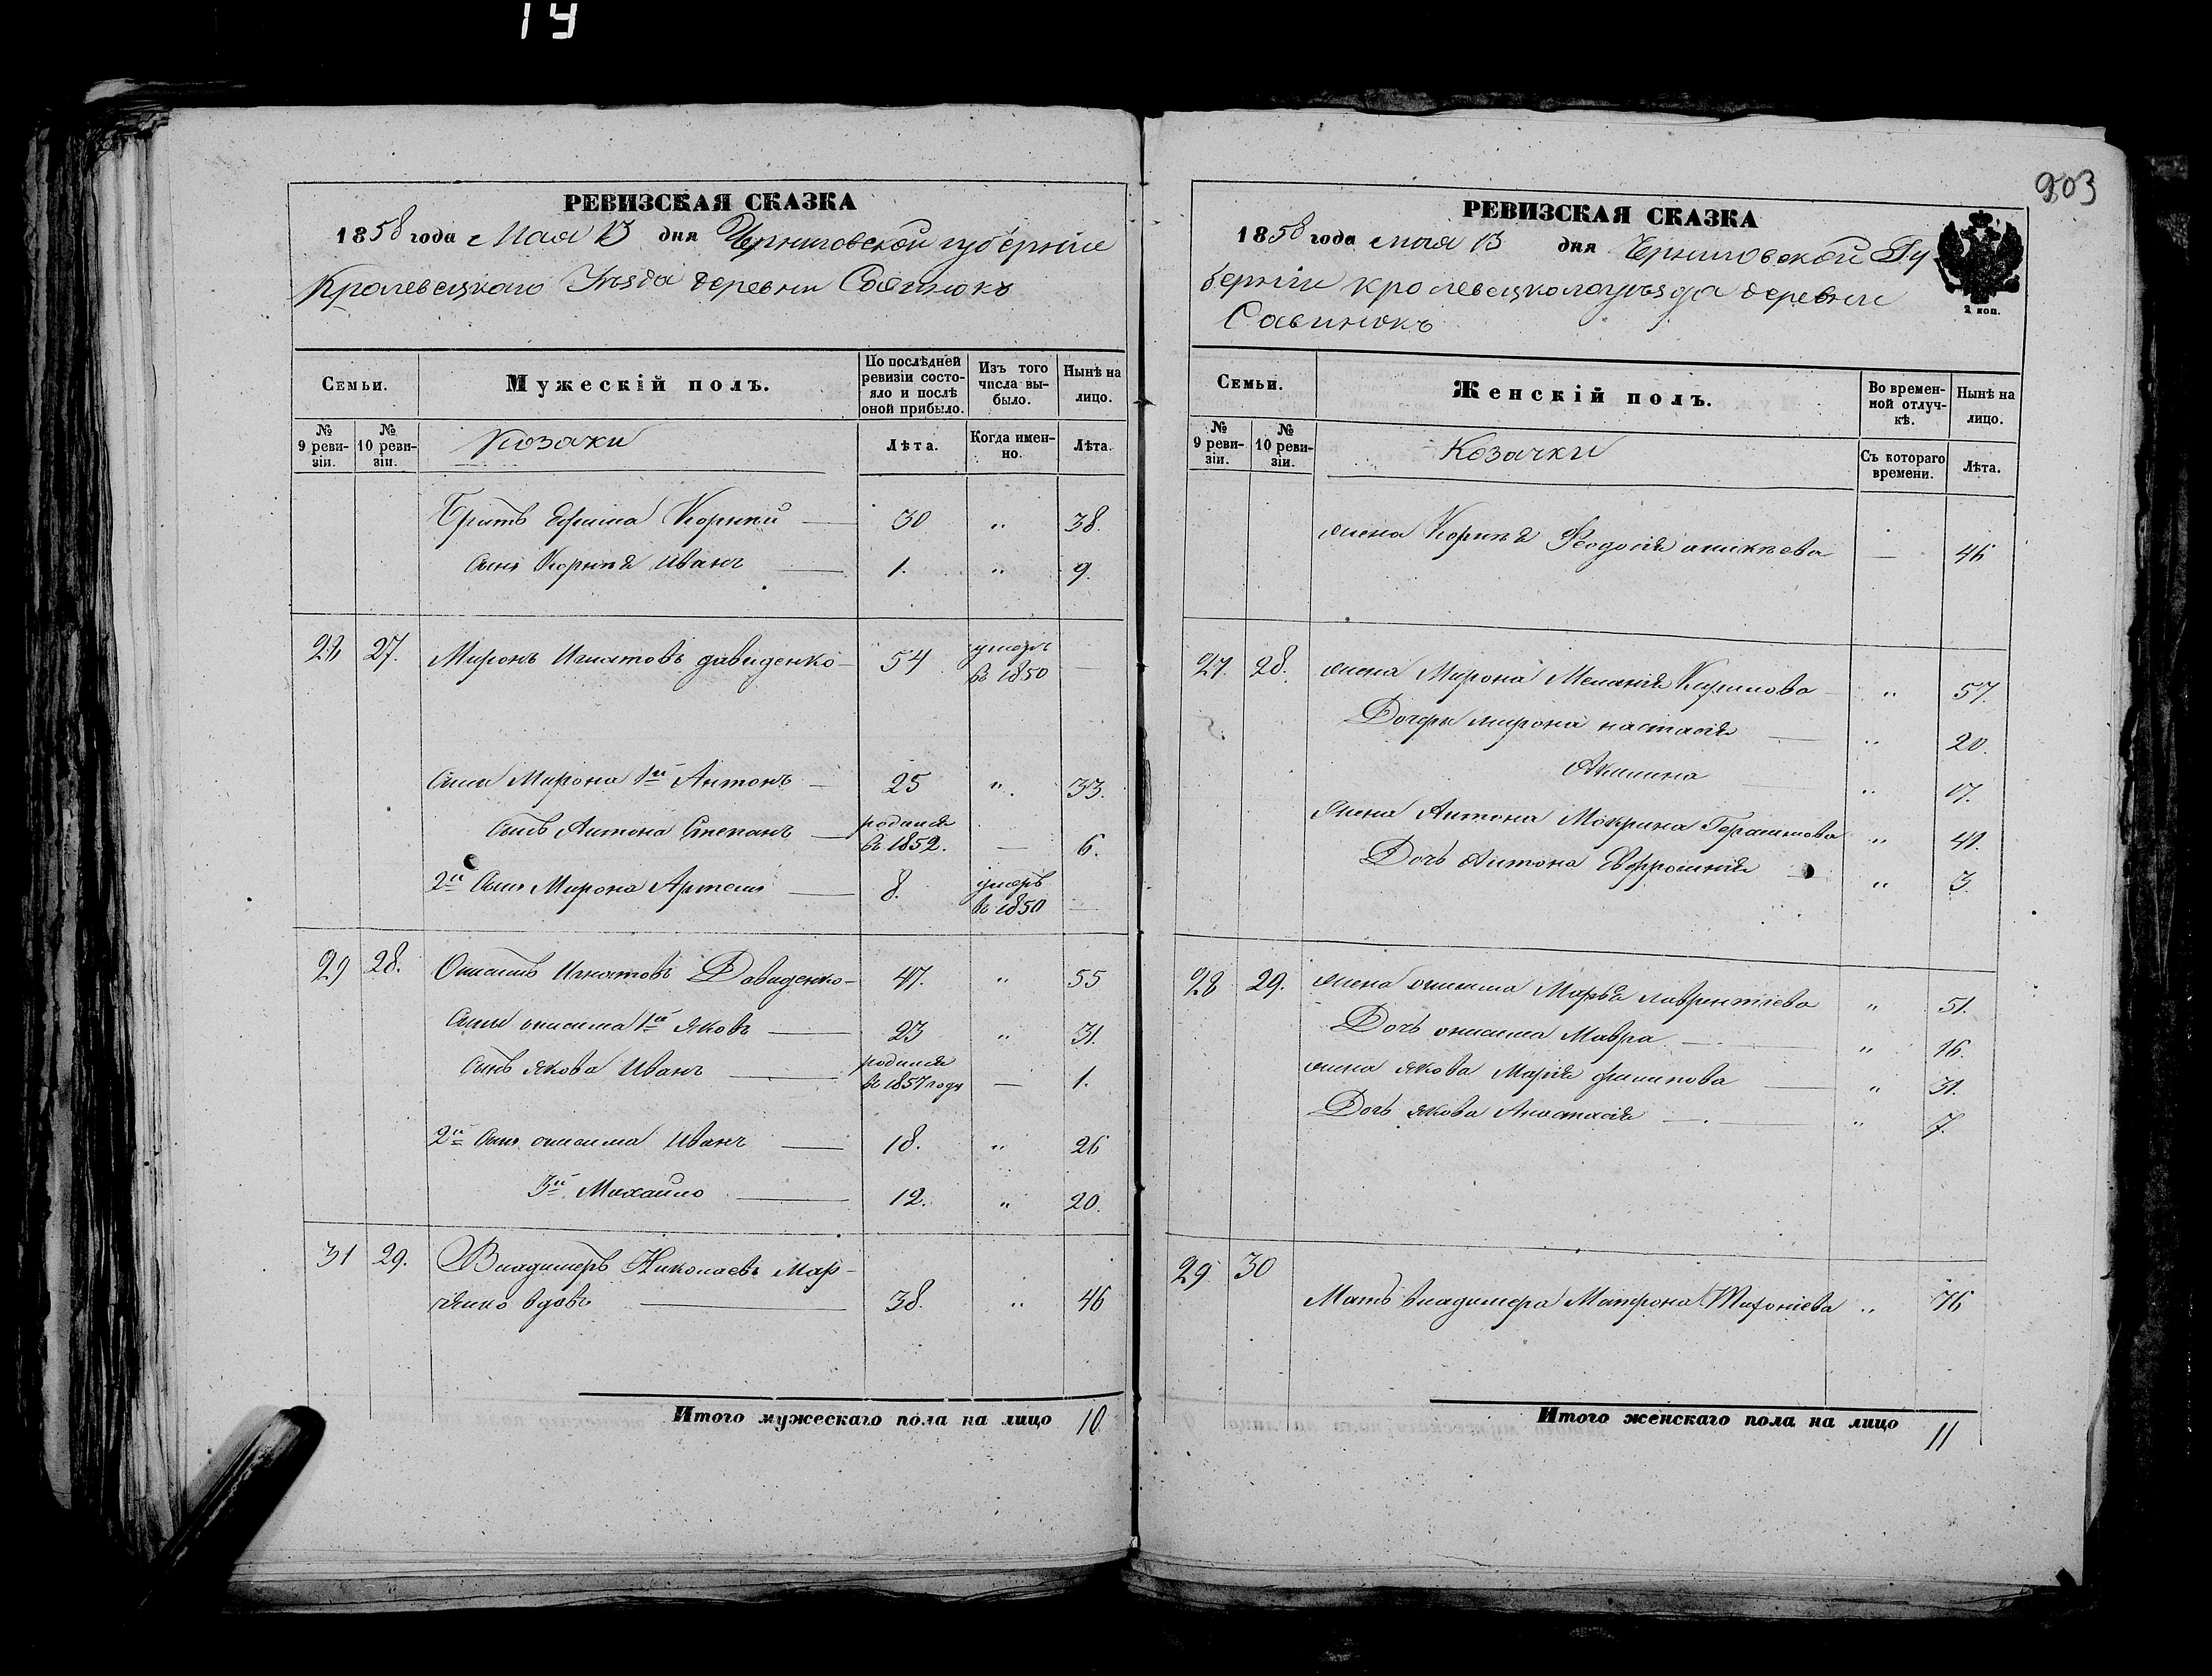 19
203
РЕВИЗСКАЯ СКАЗКА
1858 года Мая 13 дня Черниговской губерніи
Кролевецкаго Уезда деревни Савинокъ
Семьи.
Мужескій полъ.
По послѣдней ревизіи состояло и послѣ оной прибыло.
Изъ того числа выбыло.
Нынѣ на лицо.
№ 9 ревизіи.
№ 10 ревизіи.
Козаки
Лѣта.
Когда именно.
Лѣта.
Братъ Ефима Корній — 30 " 38.
Сынъ Корнія Иванъ — 1. " 9.
28 27. Миронъ Игнатовъ давиденко — 54 умеръ въ 1850 —
Сынъ Мирона 1й Антонъ — 25 " 33.
Сынъ Антона Степанъ — родился въ 1852. — 6.
2й Сынъ Мирона Артемъ — 8. умеръ въ 1850 —
29 28. Онисимъ Игнатовъ Давиденко — 47. " 55
Сыны онисима 1й Яковъ — 23 " 31.
Сынъ Якова Иванъ — родился въ 1857 году — 1.
2й Сынъ онисима Иванъ — 18. " 26
3й Михайло — 12. " 20.
31 29. Владимеръ Николаевъ Мар-
ченко вдовъ — 38. " 46
Итого мужескаго пола на лицо 10
РЕВИЗСКАЯ СКАЗКА
1858 года мая 13 дня Черниговской Гу
берніи кролевецкого уезда деревни
Савинокъ
2 коп.
Семьи.
Женскій полъ.
Во временной отлучкѣ.
Нынѣ на лицо.
№ 9 ревизіи.
№ 10 ревизіи.
Козачки
Съ котораго времени.
Лѣта.
жена Корнія Феодосія — 46
27. 28. жена Мирона Меланія Кирилова " 57.
Дочери мирона настасія — " 20.
Акилина " 17.
жена Антона Мокрина Герасимова " 41.
Дочь Антона Евфросинія — " 3.
28 29. жена онисима Марья лаврентіева " 51.
Дочь онисима Мавра — " 16.
жена Якова Марія филипова — " 31.
Дочь Якова Анастасія — " 7.
29. 30
Мать владимера Матрона " 76
Итого женскаго пола на лицо 11